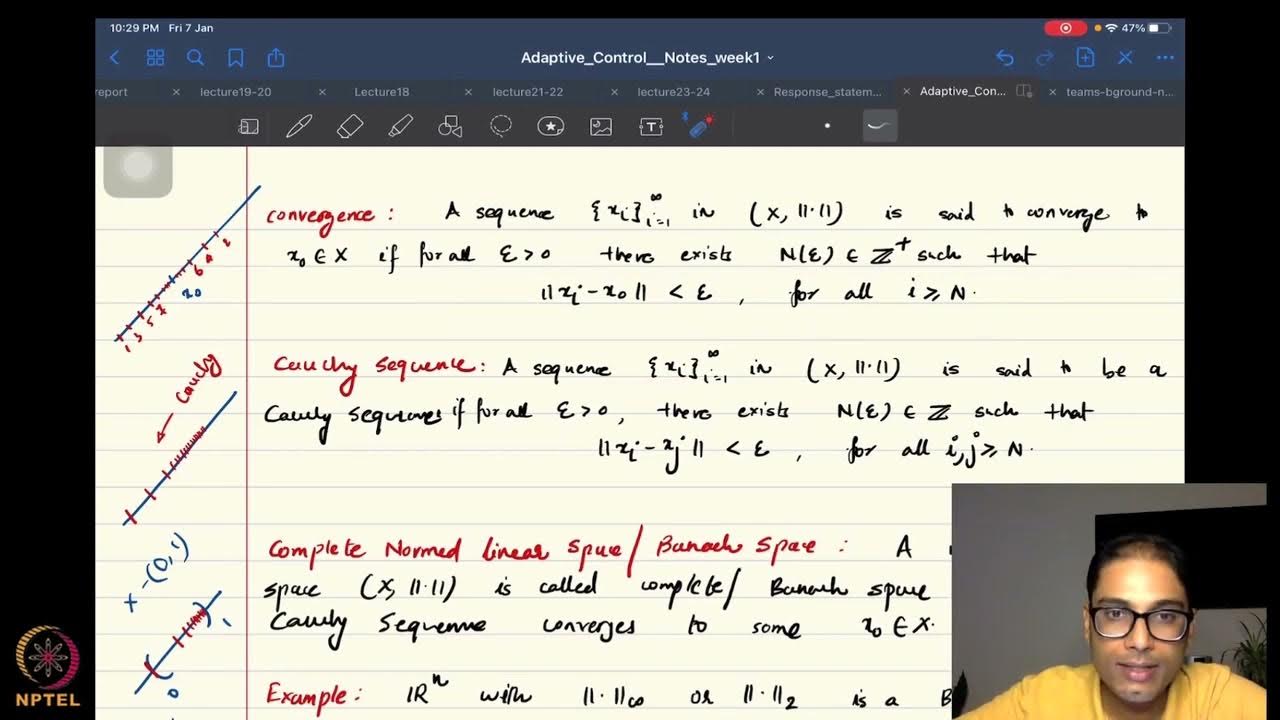 10:29 PM Fri 7 Jan
47%
Adaptive_Control__Notes_week1
report
lecture19-20
Lecture18
lecture21-22
lecture23-24
Response_statem...
Adaptive_Con...
teams-bground-n...
convergence : A sequence {xi}∞i=1 in (X, ||·||) is said to converge to
x0 ∈ X if for all ε > 0 there exists N(ε) ∈ ℤ+ such that
||xi - x0|| < ε , for all i ≥ N.
1 3 5 7 x0 6 4 2
Cauchy sequence : A sequence {xi}∞i=1 in (X, ||·||) is said to be a
Cauchy sequences if for all ε > 0, there exists N(ε) ∈ ℤ such that
||xi - xj|| < ε , for all i, j ≥ N.
Cauchy
Complete Normed linear space / Banach space : A
space (X, ||·||) is called complete / Banach space
Cauchy Sequence converges to some x0 ∈ X.
(0,1)
0 1
Example : ℝn with ||·||∞ or ||·||2 is a B
NPTEL